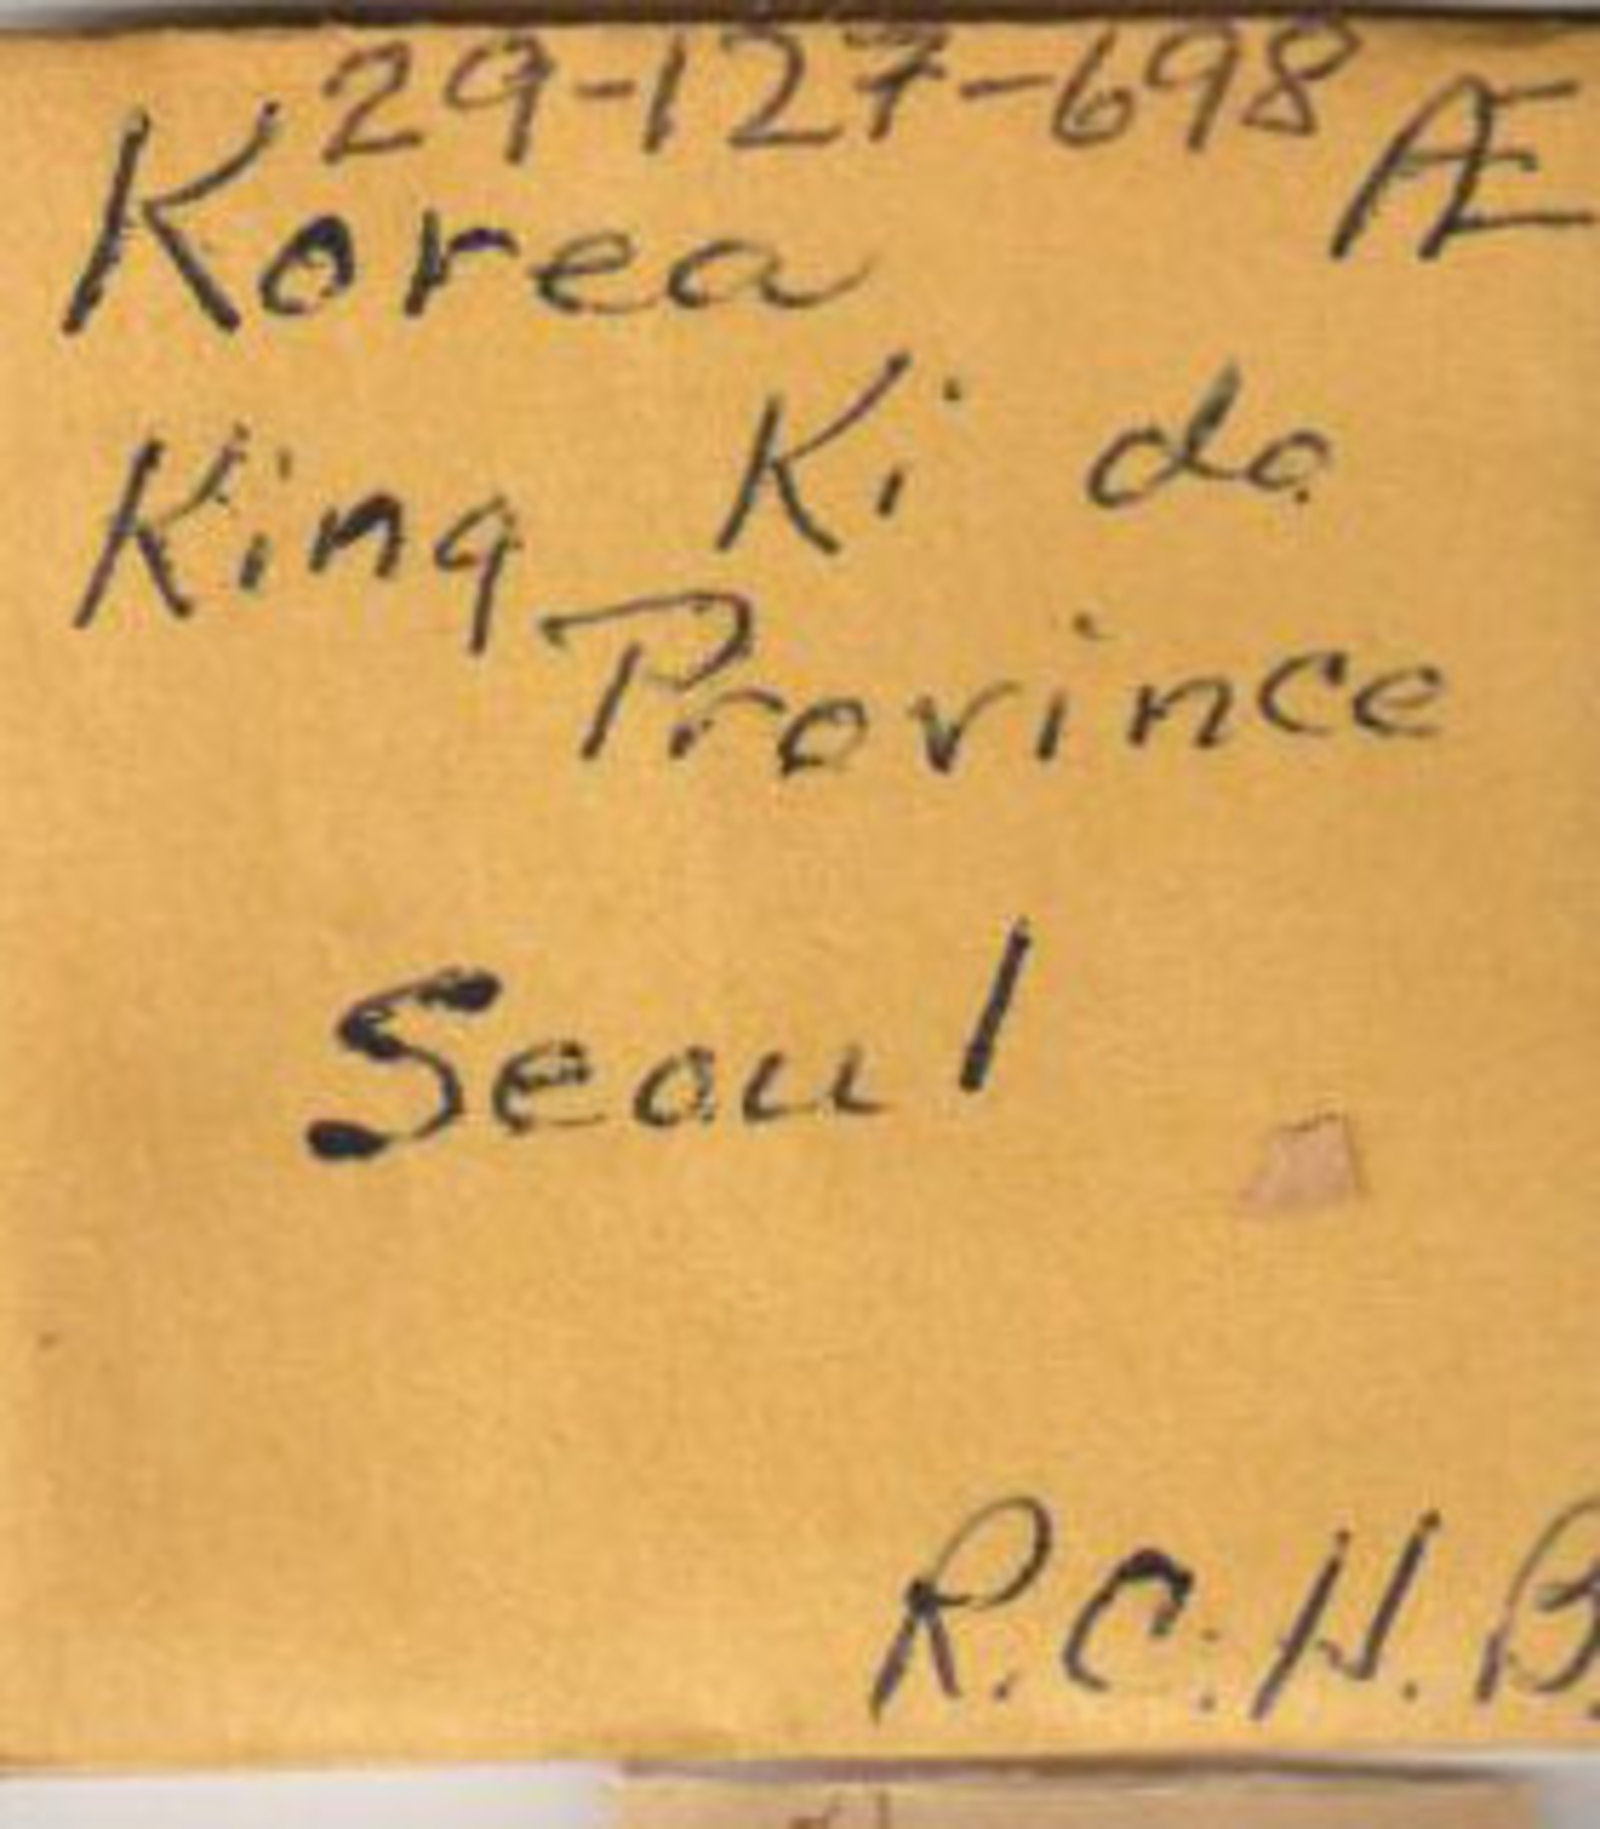 29-127-698 Æ
Korea
King Ki do
Province
Seoul
R.C.H.B.